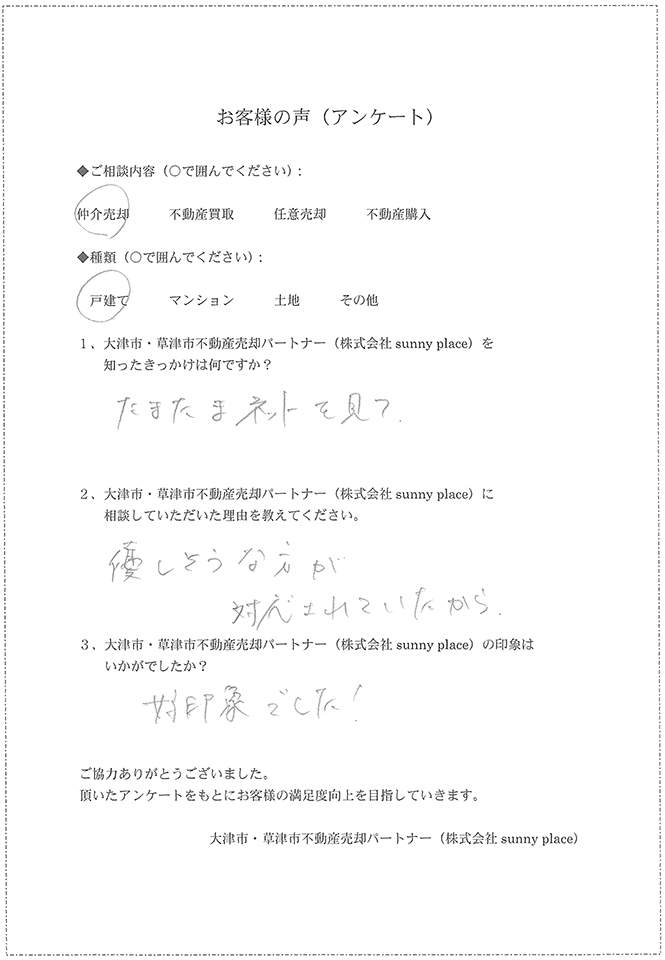 お客様の声（アンケート）
◆ご相談内容（○で囲んでください）:
仲介売却 不動産買取 任意売却 不動産購入
◆種類（○で囲んでください）:
戸建て マンション 土地 その他
１、大津市・草津市不動産売却パートナー（株式会社 sunny place）を
知ったきっかけは何ですか？
たまたまネットを見て.
２、大津市・草津市不動産売却パートナー（株式会社 sunny place）に
相談していただいた理由を教えてください。
優しそうな方が
対応されていたから.
３、大津市・草津市不動産売却パートナー（株式会社 sunny place）の印象は
いかがでしたか？
好印象でした!
ご協力ありがとうございました。
頂いたアンケートをもとにお客様の満足度向上を目指していきます。
大津市・草津市不動産売却パートナー（株式会社 sunny place）